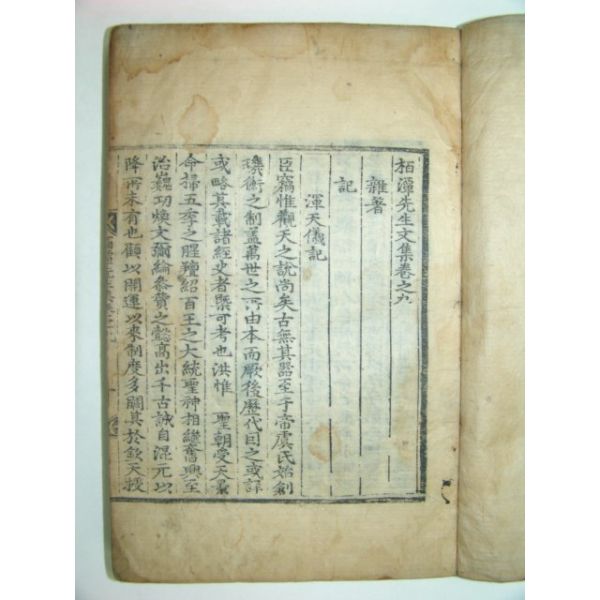 栢潭先生文集卷之九
雜著
記
渾天儀記
臣竊惟觀天之說尚矣古無其器至于帝虞氏始創
璣衡之制盖萬世之所由本而厥後歷代因之或詳
或略其載諸經史者槩可考也洪惟 聖朝受天景
命掃五季之腥羶紹百王之大統聖神相繼奮興至
治巍功煥文彌綸叅贊之懿高出千古誠自混元以
降所未有也顧以開運以來制度多闕其於欽天授